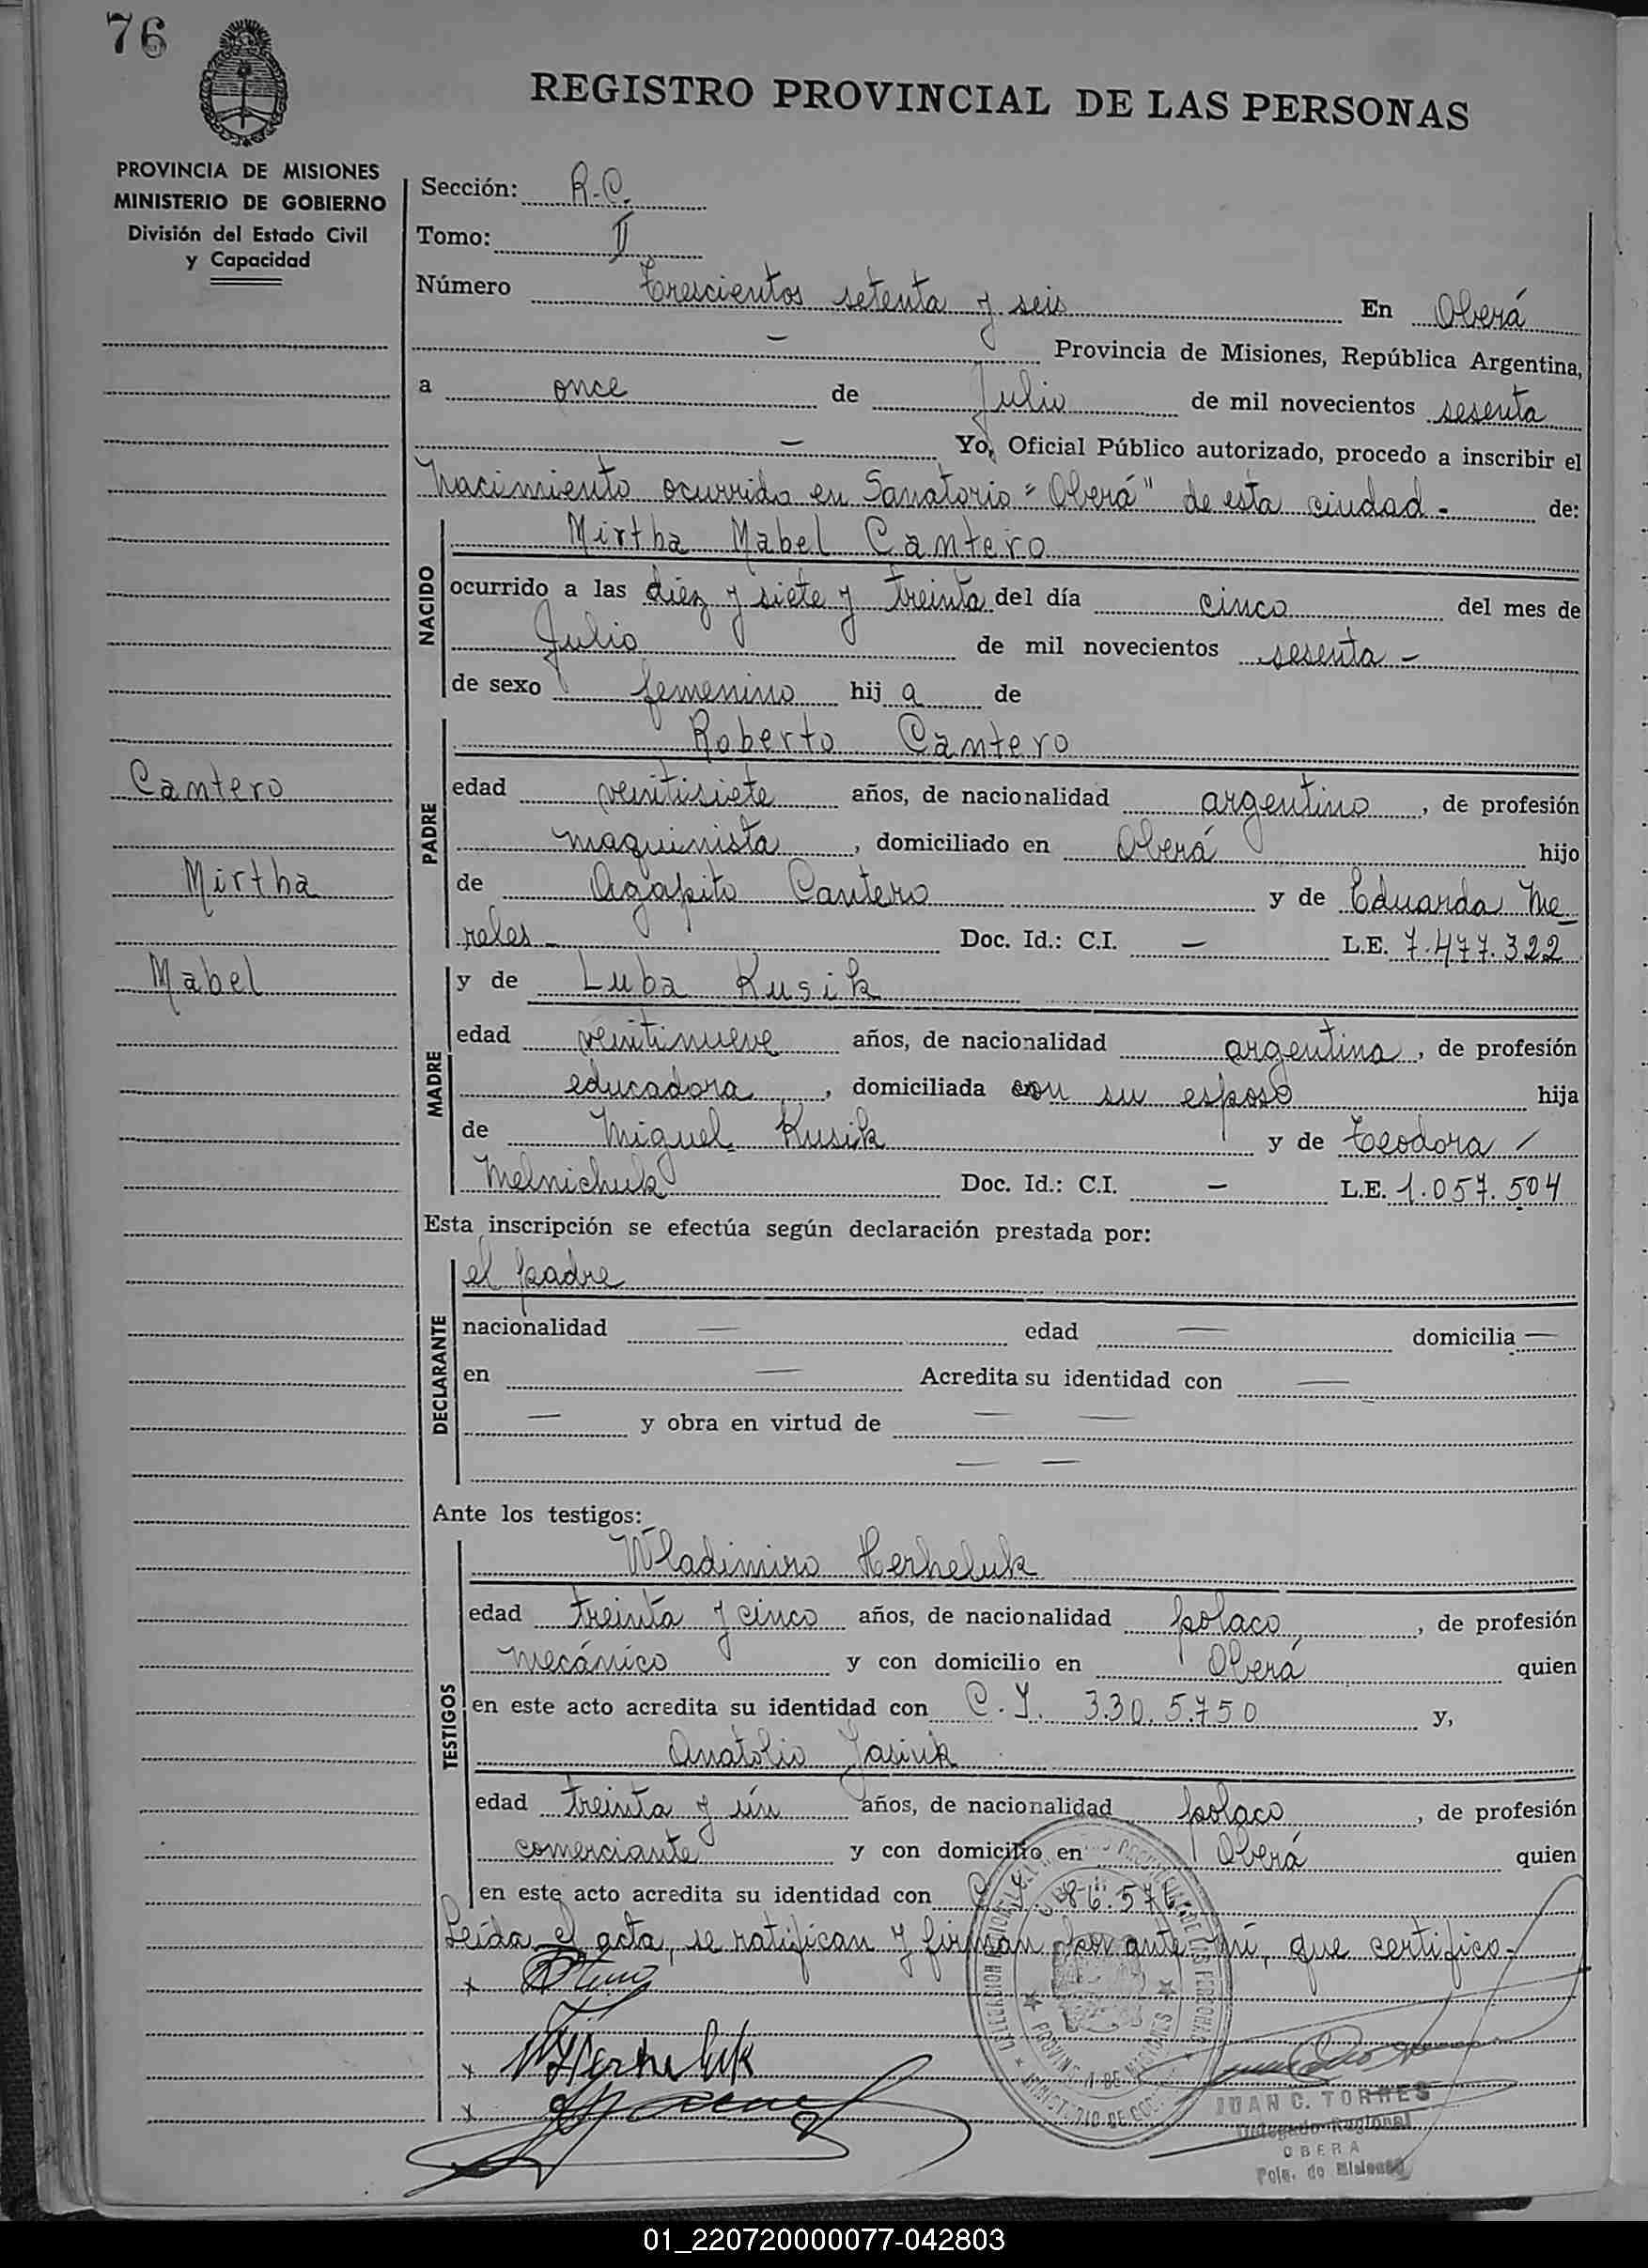 76
REGISTRO PROVINCIAL DE LAS PERSONAS
PROVINCIA DE MISIONES
MINISTERIO DE GOBIERNO
División del Estado Civil
y Capacidad
Sección: R.C.
Tomo: II
Número Trescientos setenta y seis En Oberá
— Provincia de Misiones, República Argentina,
a once de Julio de mil novecientos sesenta
— Yo, Oficial Público autorizado, procedo a inscribir el
Nacimiento ocurrido en Sanatorio "Oberá" de esta ciudad - de:
NACIDO
Mirtha Mabel Cantero
ocurrido a las diez y siete y treinta del día cinco del mes de
Julio de mil novecientos sesenta -
de sexo femenino hija de
PADRE
Roberto Cantero
Cantero
Mirtha
Mabel
edad veintisiete años, de nacionalidad argentino, de profesión
maquinista, domiciliado en Oberá hijo
de Agapito Cantero y de Eduarda Me
reles - Doc. Id.: C.I. — L.E. 7.477.322
MADRE
y de Luba Kusik
edad veintinueve años, de nacionalidad argentina, de profesión
educadora, domiciliada con su esposo hija
de Miguel Kusik y de Teodora
Melnichuk Doc. Id.: C.I. — L.E. 1.057.504
Esta inscripción se efectúa según declaración prestada por:
DECLARANTE
el padre
nacionalidad — edad — domicilia —
en — Acredita su identidad con —
— y obra en virtud de — —
— —
Ante los testigos:
TESTIGOS
Wladimiro Herheluk
edad treinta y cinco años, de nacionalidad polaco, de profesión
mecánico y con domicilio en Oberá quien
en este acto acredita su identidad con C.I. 330.5750 y,
Anatolio Jasiuk
edad treinta y ún años, de nacionalidad polaco, de profesión
comerciante y con domicilio en Oberá quien
en este acto acredita su identidad con
Leída el acta, se ratifican y firman por ante mí, que certifico -
x
x WHerheluk
x
PROVINCIA DE MISIONES
JUAN C. TORRES
Delegado Regional
OBERA
Pcia. de Misiones
01_220720000077-042803